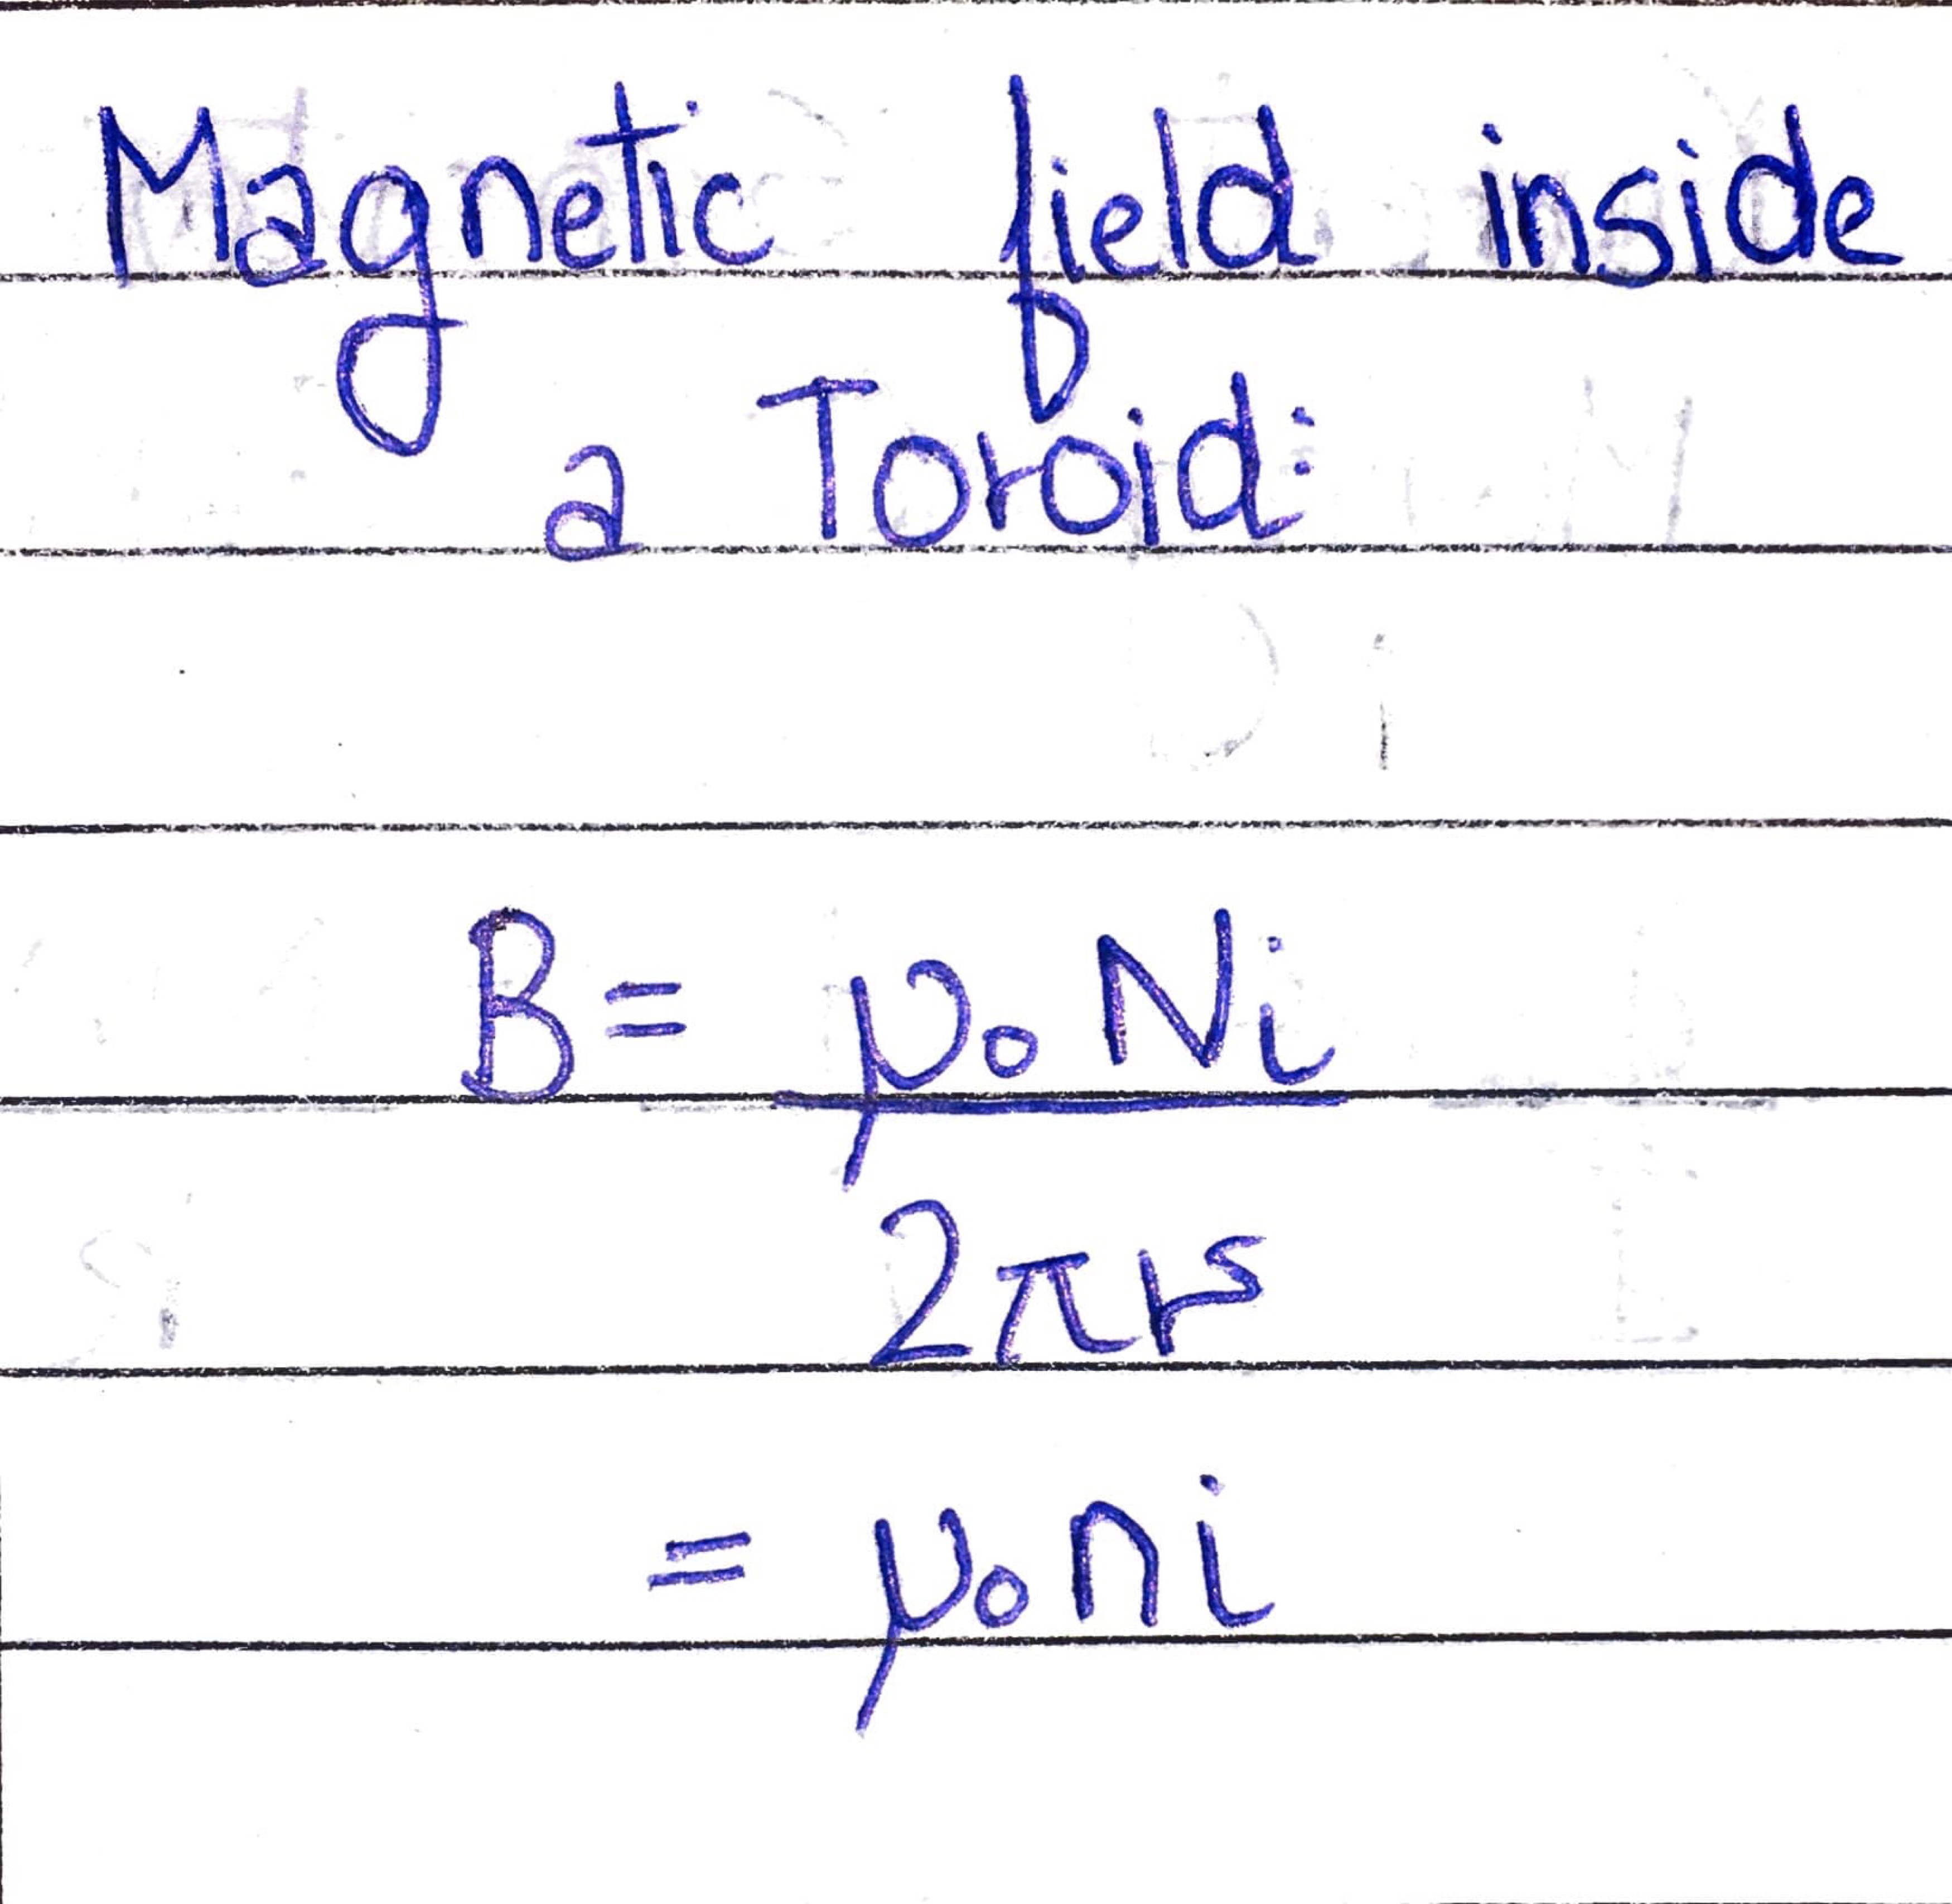 Magnetic field inside
a Toroid:
B = μ₀ Ni
2πr
= μ₀ni